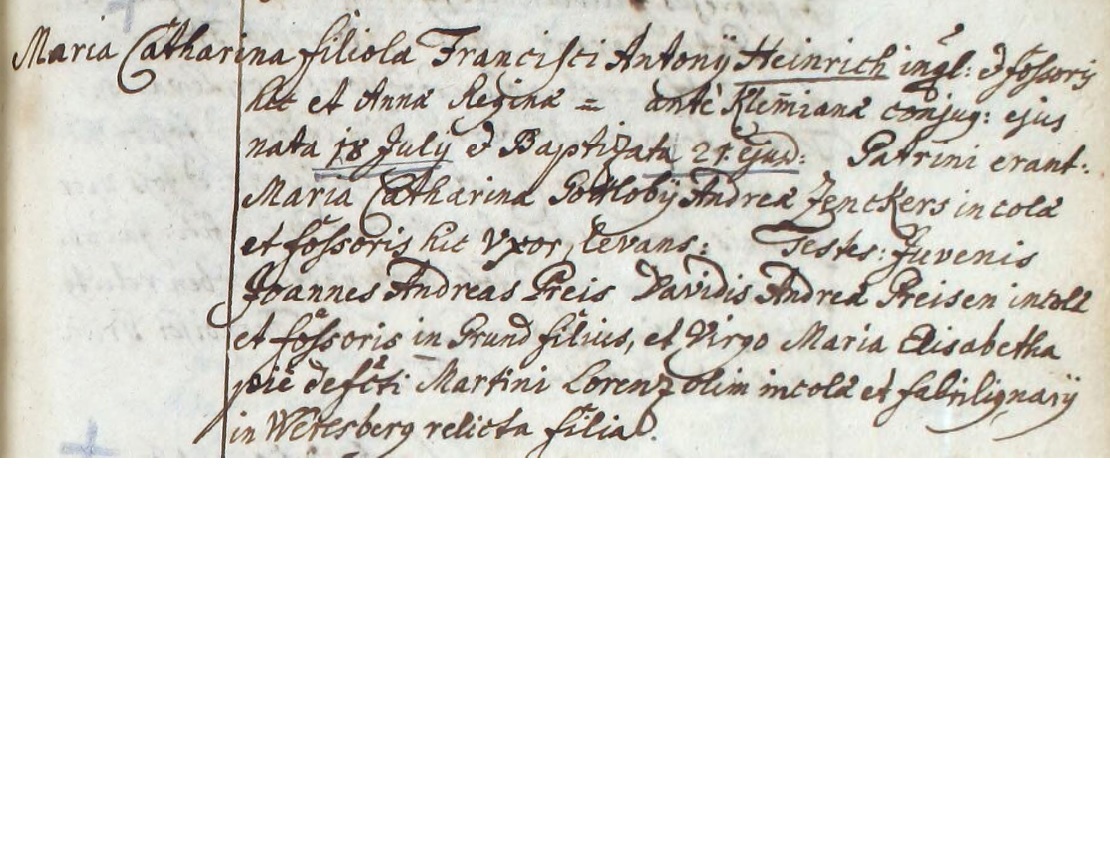 Maria Catharina filiola Francisci Antonÿ Heinrich inql: et fossoris
hic et Annæ Reginæ = antè Klem̄ianæ conjug: ejus
nata 18 Julÿ et Baptizata 21. ejusd: Patrini erant:
Maria Catharina Gottlobÿ Andreæ Zenckers incolæ
et fossoris hic Vxor, levans: Testes: Juvenis
Joannes Andreas Preis Davidis Andreæ Preisen incolæ
et fossoris in Grund filius, et Virgo Maria Elisabetha
piè defcti Martini Lorenz olim incolæ et fabrilignarÿ
in Wetesberg relicta filia.